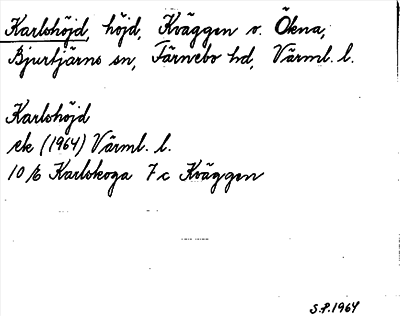 Karlshöjd, höjd, Kväggen o. Ökna,
Bjurtjärns sn, Färnebo hd, Värml. l.
Karlshöjd
ek (1964) Värml. l.
10 E Karlskoga 7 c Kväggen
S.P. 1964